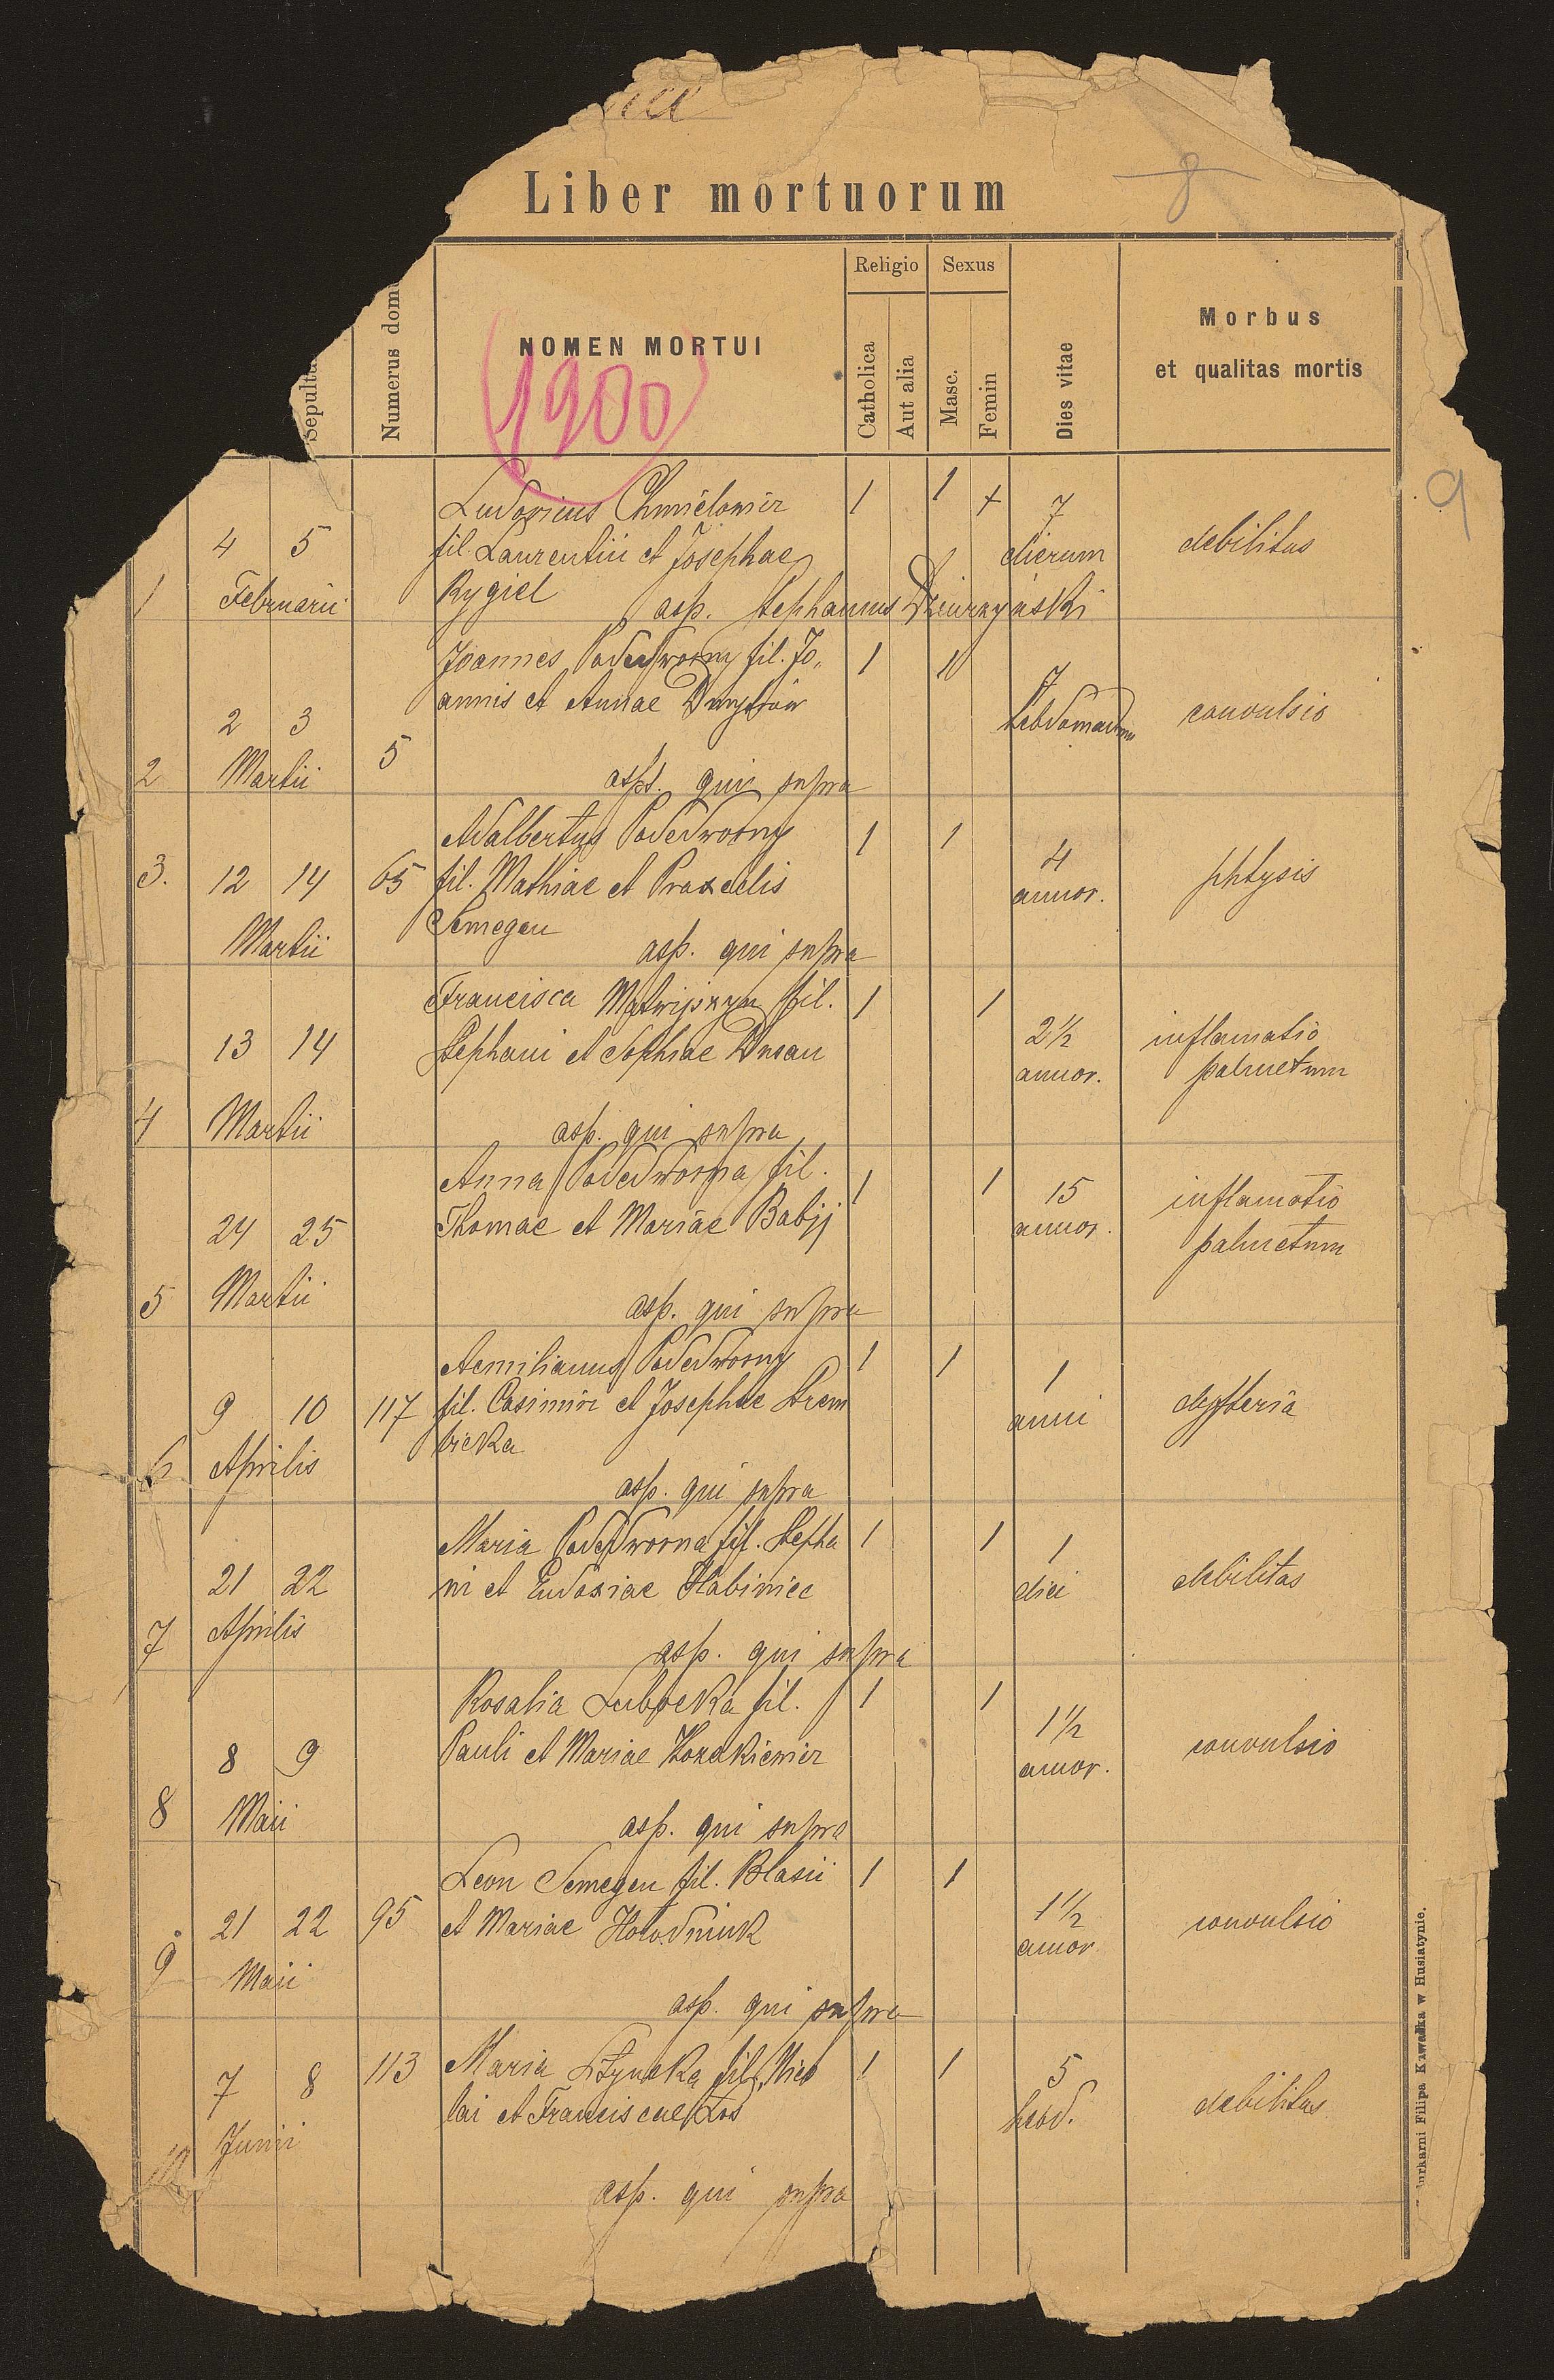 Liber mortuorum
8
9
Sepultu
Numerus dom
NOMEN MORTUI
(1900)
Religio
Catholica
Aut alia
Sexus
Masc.
Femin
Dies vitae
Morbus
et qualitas mortis
1 4 5 Februarii
Ludovicus Chmielowicz 1 1 + 7 dierum debilitas
fil. Laurentii et Josephae
Rygiel
asp. Stephanus Dziurzyński
2 2 3 Martii 5
Joannes Podedworny fil. Jo„ 1 1 7 hebdomadum convulsio
annis et Annae Dmytrów
asp. qui supra
3. 12 14 Martii 65
Adalbertus Podedworny 1 1 4 annor. phtysis
fil. Mathiae et Praxedis
Semegen
asp. qui supra
4 13 14 Martii
Francisca Matwijszyn fil. 1 1 2½ annor. inflamatio
Stephani et Sophiae Dusan palmetum
asp. qui supra
5 24 25 Martii
Anna Podedworna fil. 1 1 15 annor. inflamatio
Thomae et Mariae Babij palmetum
asp. qui supra
6 9 10 Aprilis 117
Aemilianus Podedworny 1 1 1 anni dyfteria
fil. Casimiri et Josephae Strem
bicka
asp. qui supra
7 21 22 Aprilis
Maria Podedworna fil. Stepha 1 1 1 diei debilitas
ni et Eudoxiae Habiniec
asp. qui supra
8 8 9 Maii
Rosalia Lubocka fil. 1 1 1½ annor. convulsio
Pauli et Mariae
asp. qui supra
9 21 22 Maii 95
Leon Semegen fil. Blasii 1 1 1½ annor. convulsio
et Mariae Hołodniuk
asp. qui supra
7 8 Junii 113
Maria fil. Nico 1 1 5 hebd. debilitas
lai et Franciscae Łoś
asp. qui supra
rukarni Filipa Kawalka w Husiatynie.